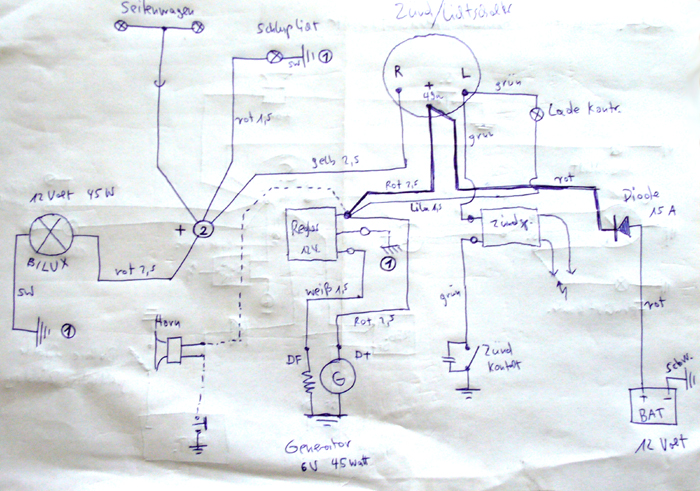 Seitenwagen
Zünd/Lichtschalter
Schlußlicht
sw
1
R
+
L
49a
grün
Lade Kontr.
rot 1,5
grün
gelb 2,5
12 Volt 45W
Rot 2,5
rot
Diode
15 A
Lila 1,5
+
2
Regler
12V.
Zündsp.
BILUX
rot 2,5
1
sw
weiß 1,5
grün
rot
Horn
Rot 2,5
1
DF
D+
Zünd
Kontakt
schw.
G
+
-
BAT
Generator
6V 45Watt
12 Volt